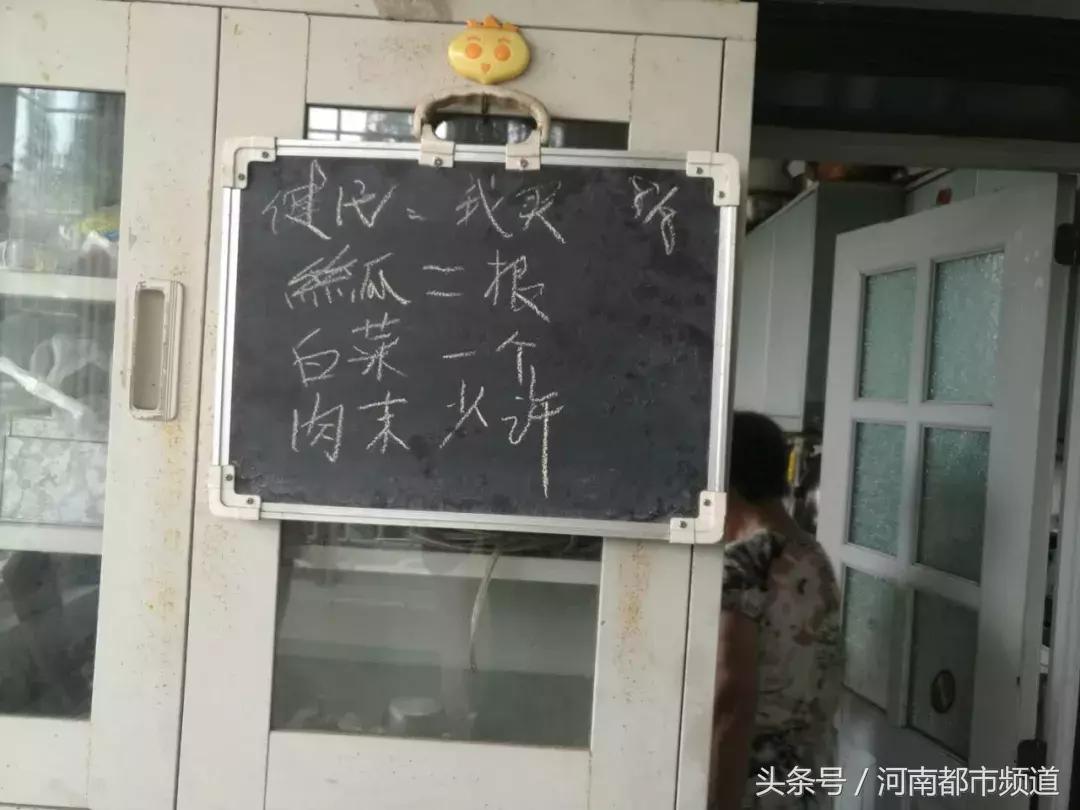 健民：我买
丝瓜二根
白菜一个
肉末少许
头条号 / 河南都市频道